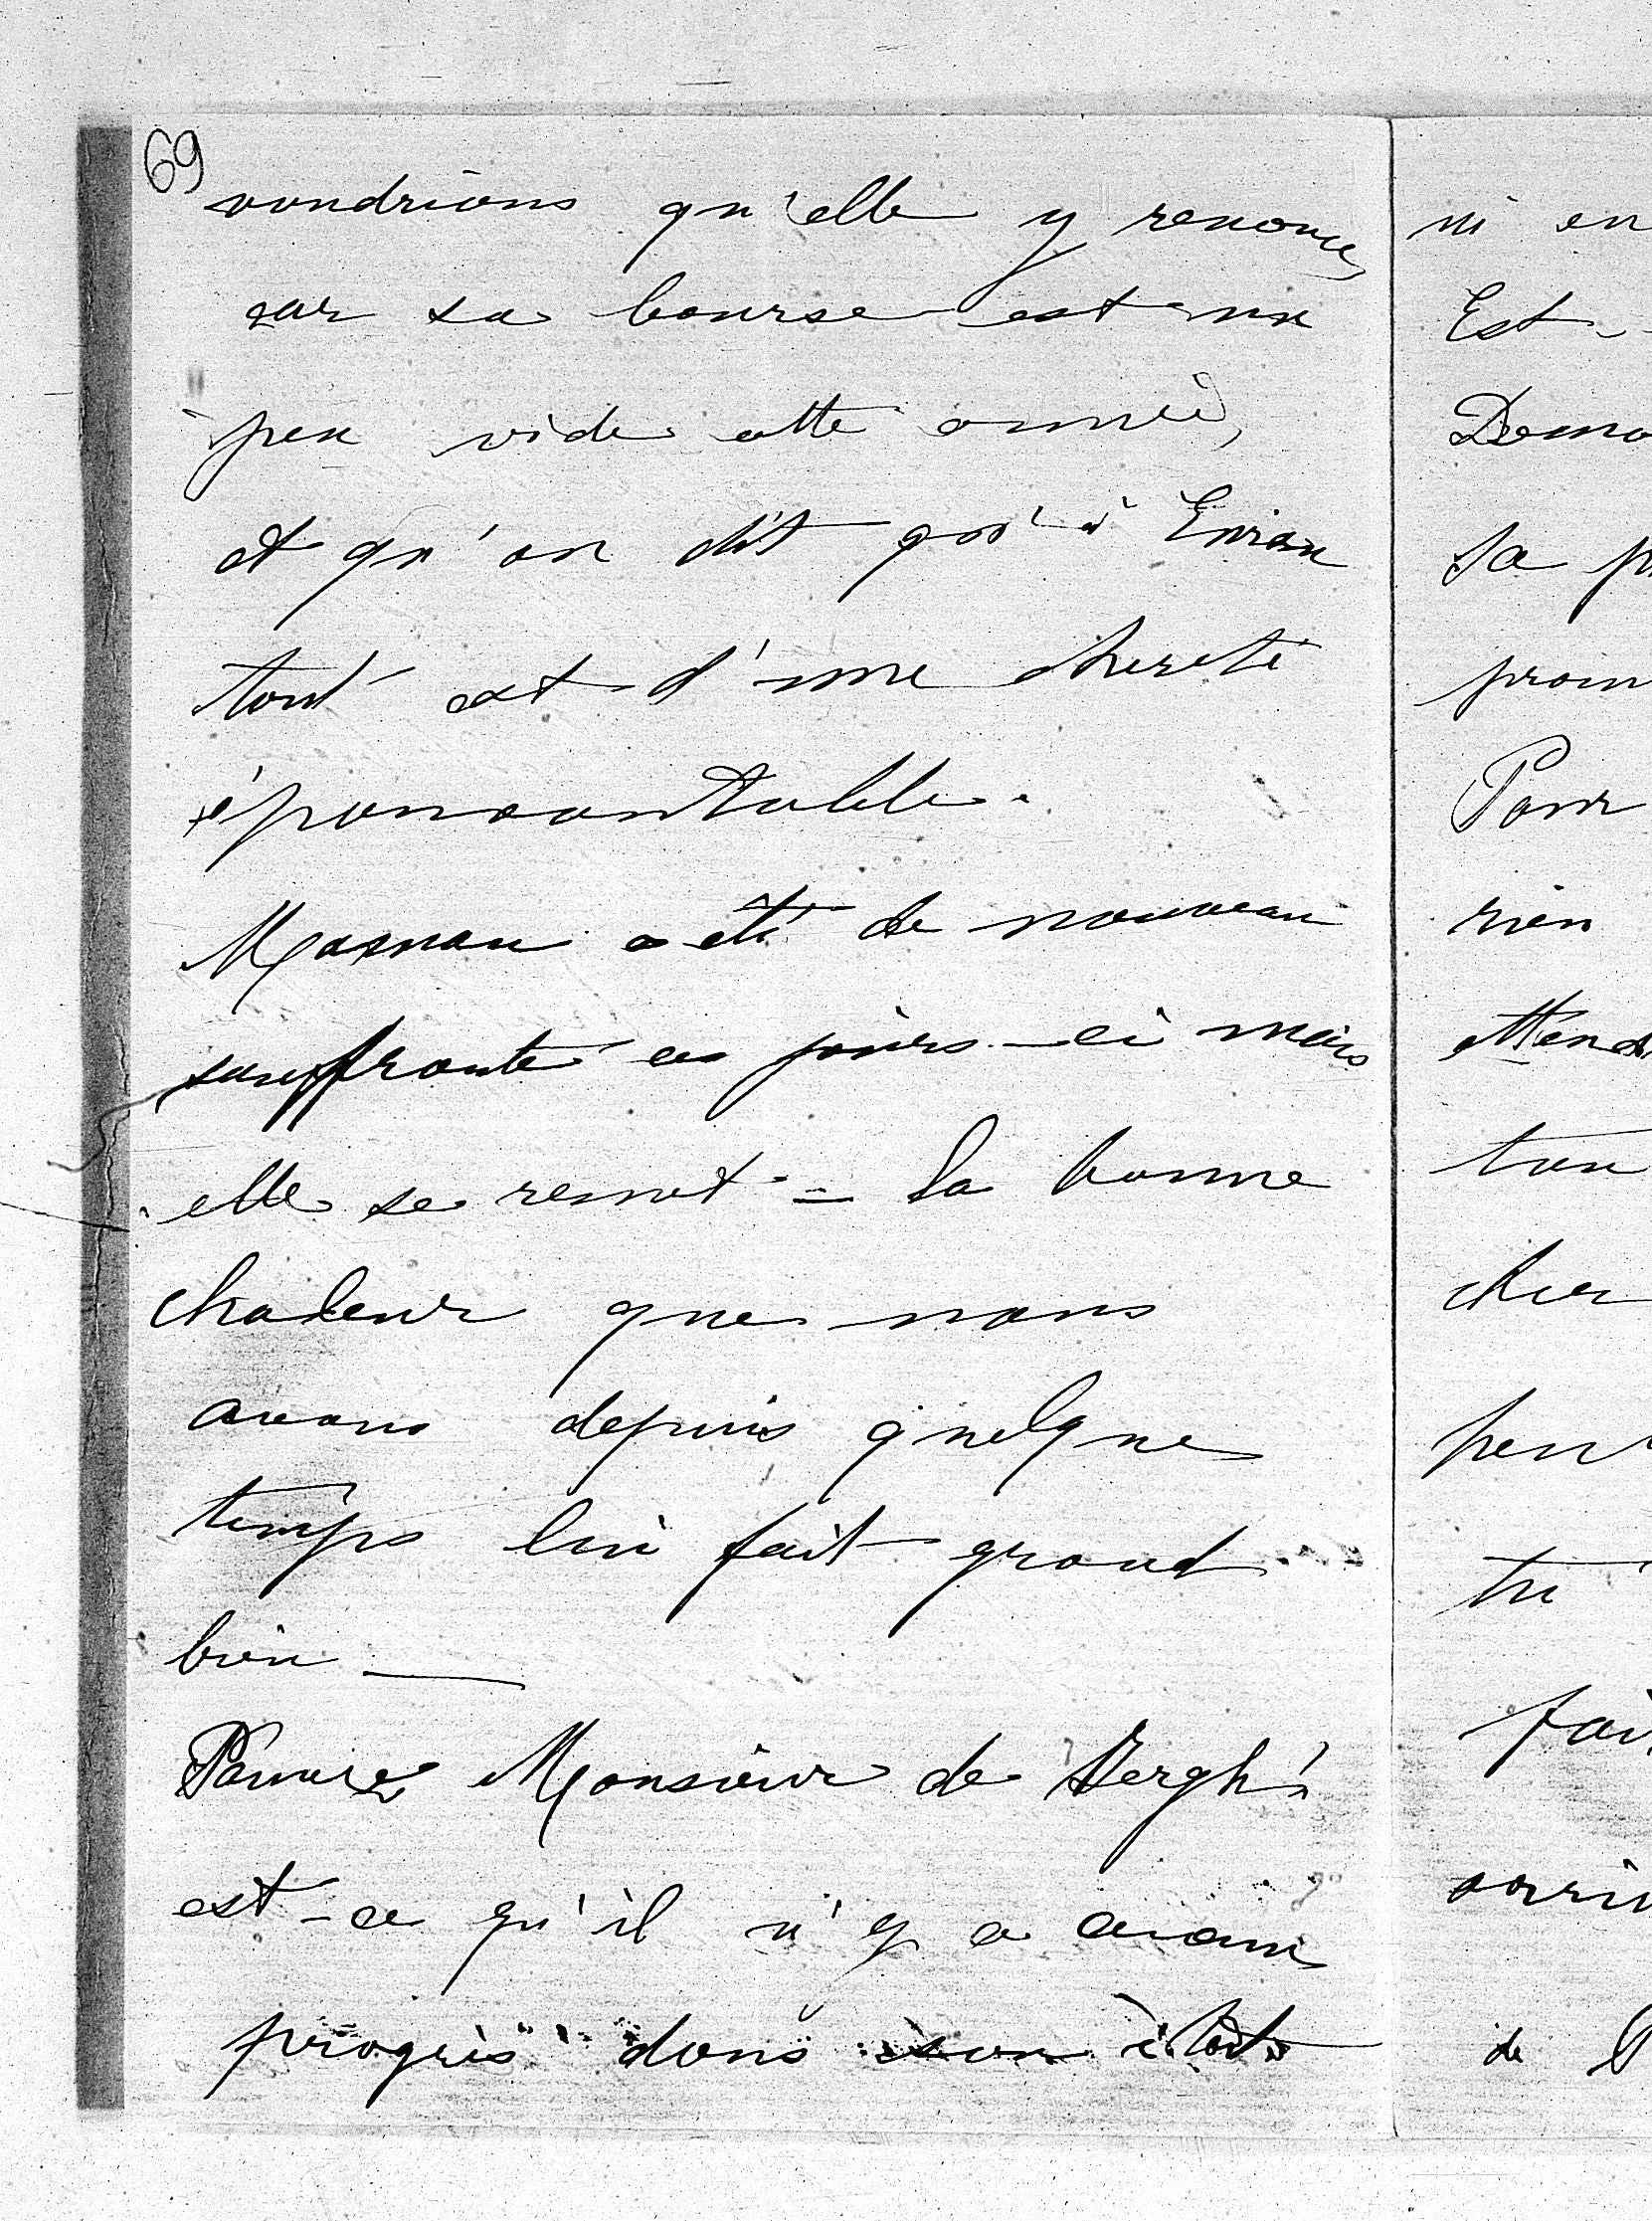 69
voudrions qu'elle y renonce
car sa bourse est un
peu vide cette année,
et qu'on dit qu'à Evian
tout est d'une cherté
épouvantable.
Maman a été de nouveau
souffrante ces jours-ci mais
elle se remet - la bonne
chaleur que nous
avons depuis quelque
temps lui fait grand
bien —
Pauvre Monsieur de
est-ce qu'il n'y a aucun
progrès dans son état
ni en
Est-
Dema
sa p
prom
Pour
rien
attend
ton
cher
peu
tu
fai
arriv
de